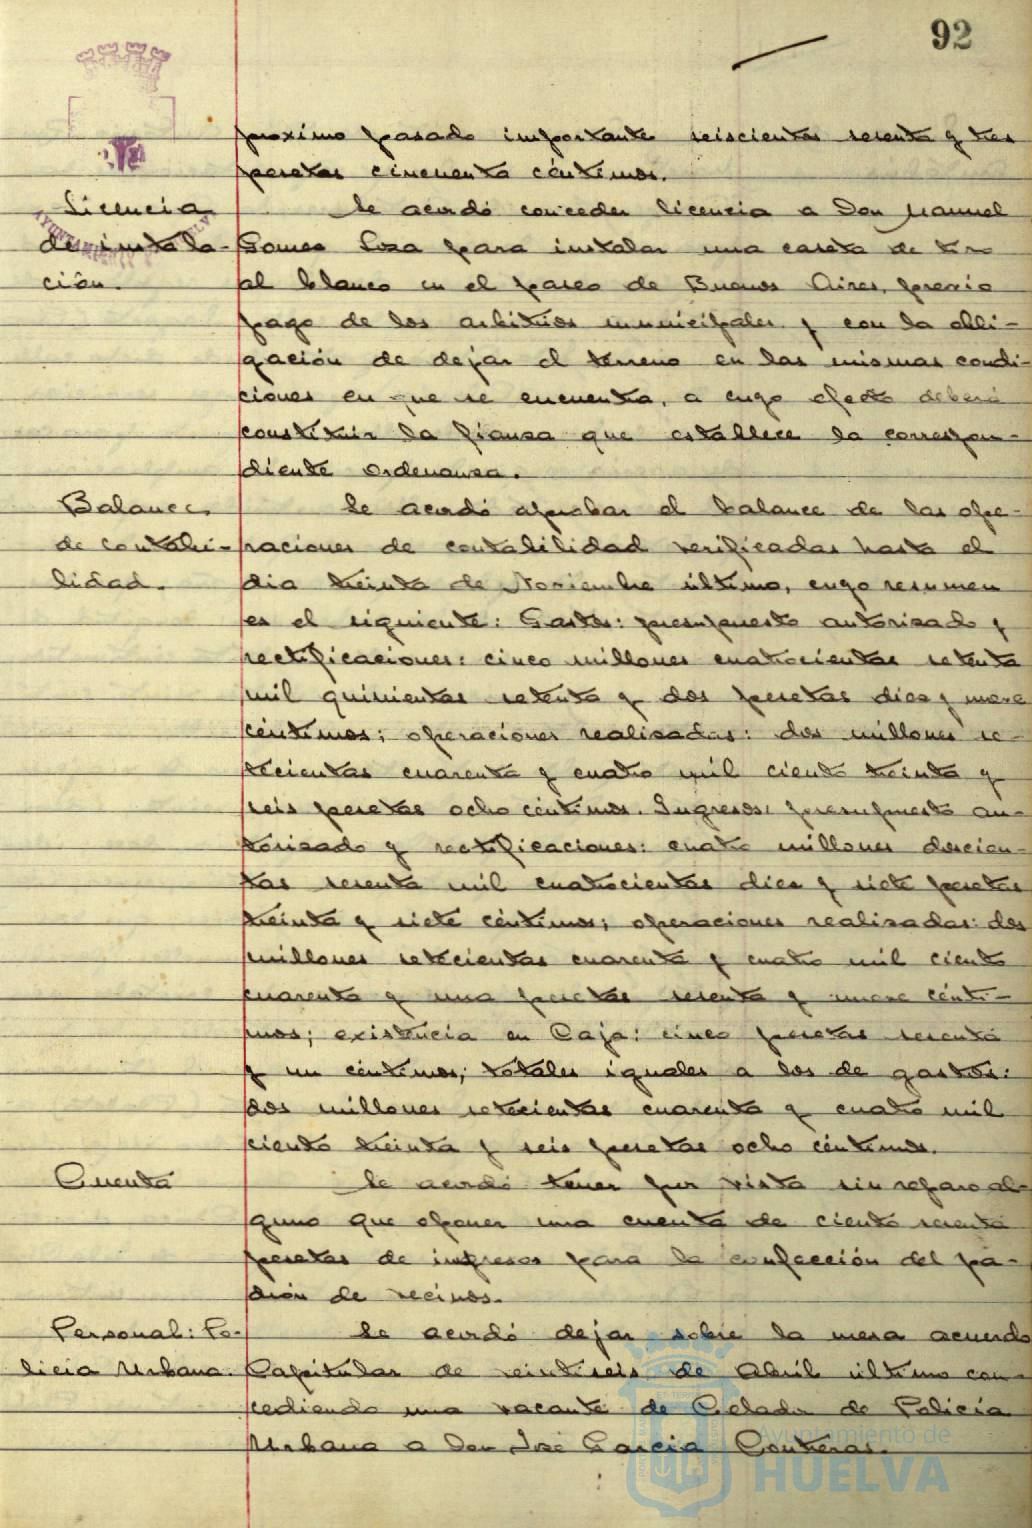 92
proximo pasado importante seiscientas sesenta y tres
pesetas cincuenta céntimos.
Licencia
de instala-
ción.
Se acordó conceder licencia a Don Manuel
Gomez Loza para instalar una caseta de tiro
al blanco en el paseo de Buenos Aires, previo
pago de los arbitrios municipales y con la obli-
gación de dejar el terreno en las mismas condi-
ciones en que se encuentra, a cuyo efecto deberá
constituir la fianza que establece la correspon-
diente ordenanza.
Balance
de contabi-
lidad.
Se acordó aprobar el balance de las ope-
raciones de contabilidad verificadas hasta el
dia treinta de Noviembre último, cuyo resumen
es el siguiente: Gastos: presupuesto autorizado y
rectificaciones: cinco millones cuatrocientas setenta
mil quinientas setenta y dos pesetas diez y nueve
céntimos; operaciones realizadas: dos millones se-
tecientas cuarenta y cuatro mil ciento treinta y
seis pesetas ocho céntimos. Ingresos: presupuesto au-
torizado y rectificaciones: cuatro millones doscien-
tas sesenta mil cuatrocientas diez y siete pesetas
treinta y siete céntimos; operaciones realizadas: dos
millones setecientas cuarenta y cuatro mil ciento
cuarenta y una pesetas sesenta y nueve cénti-
mos; existencia en Caja: cinco pesetas sesenta
y un céntimos; totales iguales a los de gastos:
dos millones setecientas cuarenta y cuatro mil
ciento treinta y seis pesetas ocho céntimos.
Cuenta
Se acordó tener por vista sin reparo al-
guno que oponer una cuenta de ciento sesenta
pesetas de impresos para la confección del pa-
drón de vecinos.
Personal: Po-
licia Urbana.
Se acordó dejar sobre la mesa acuerdo
Capitular de veintiseis de Abril último con-
cediendo una vacante de Celador de Policía
Urbana a Don José Garcia Contreras.
Ayuntamiento de
HUELVA